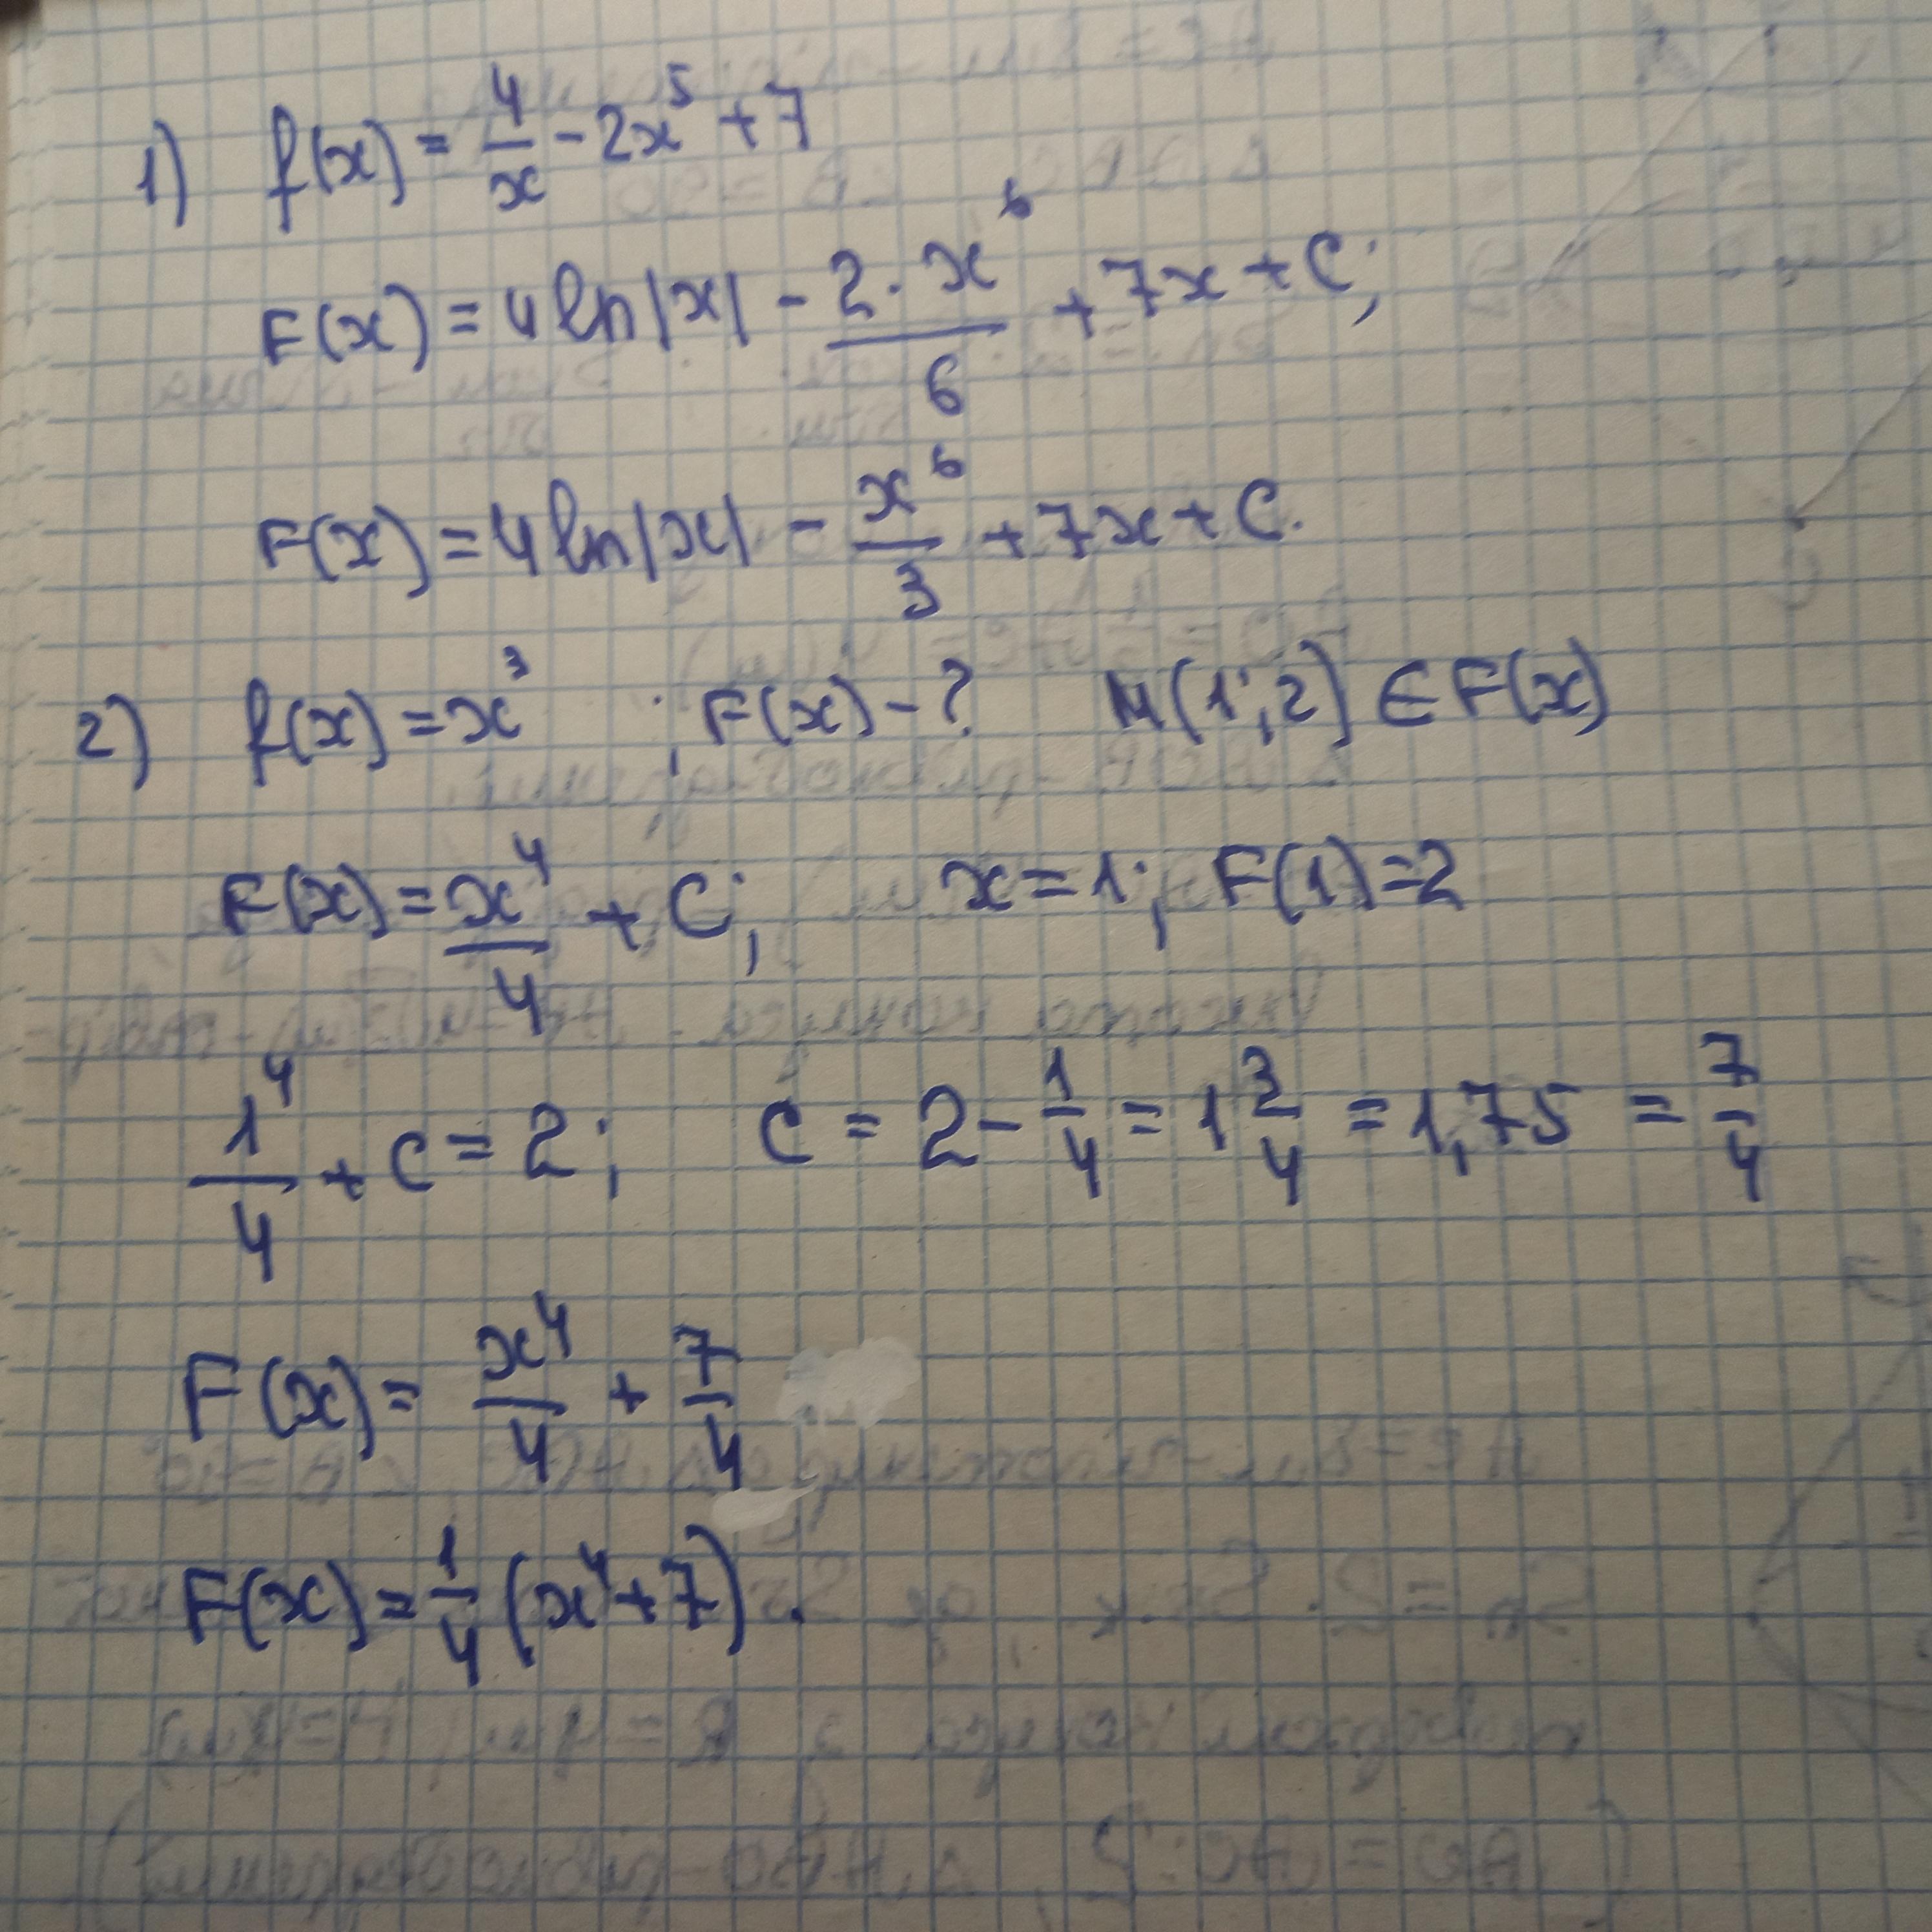 1) f(x) = 4/x - 2x⁵ + 7
F(x) = 4 ln|x| - 2·x⁶/6 + 7x + C;
F(x) = 4 ln|x| - x⁶/3 + 7x + C.
2) f(x) = x³ ; F(x) - ? M(1; 2) ∈ F(x)
F(x) = x⁴/4 + C; x = 1; F(1) = 2
1⁴/4 + C = 2; C = 2 - 1/4 = 1 3/4 = 1,75 = 7/4
F(x) = x⁴/4 + 7/4
F(x) = 1/4 (x⁴ + 7).